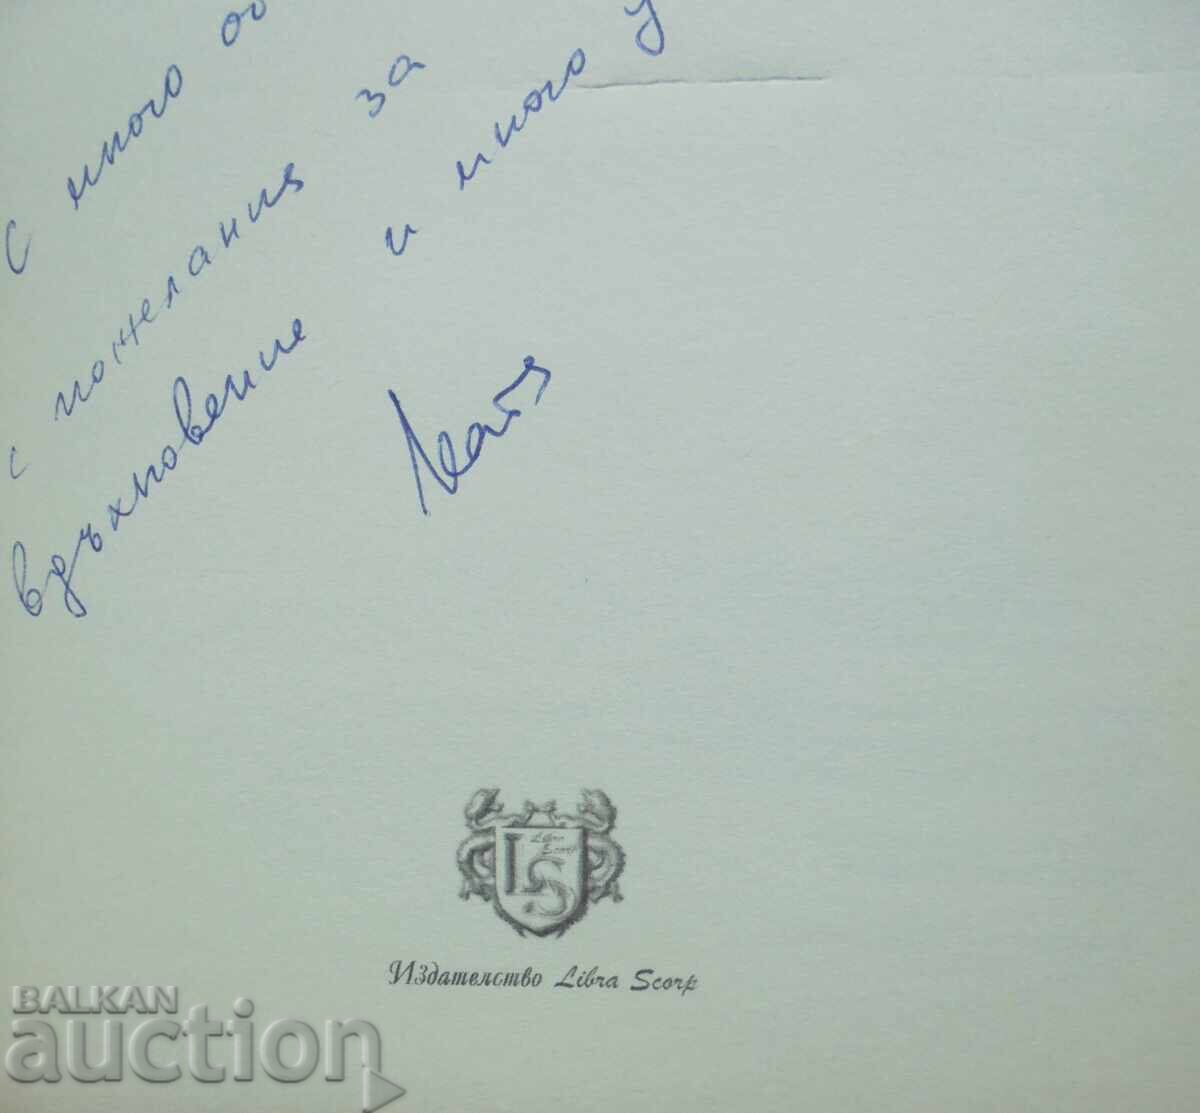 С много
с пожелания за
вдъхновение и много
Libra
Scorp
LS
Издателство Libra Scorp
BALKAN
auction